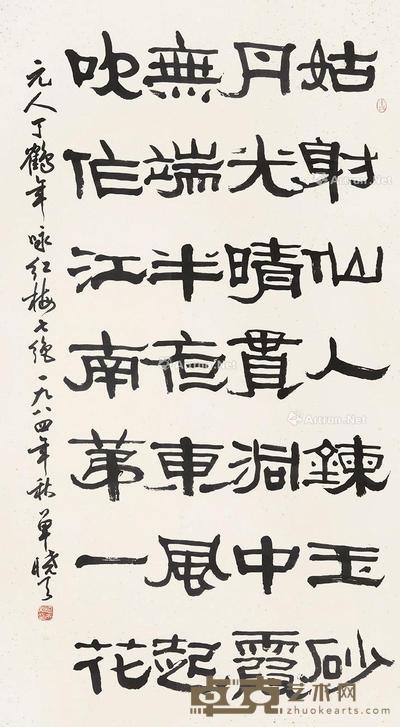 姑射仙人鍊玉砂
丹光晴貫洞中霞
無端半夜東風起
吹作江南第一花
元人丁鶴年咏红梅七绝 一九八四年秋 單晓天
Artron.Net
卓克艺术网
zhuokearts.com